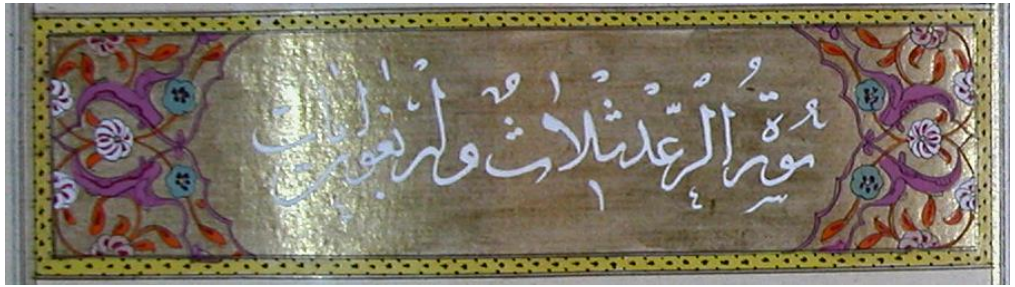 سُورَةُ الرَّعْدِ ثَلَاثٌ وَأَرْبَعُونَ اٰيَاتٍ